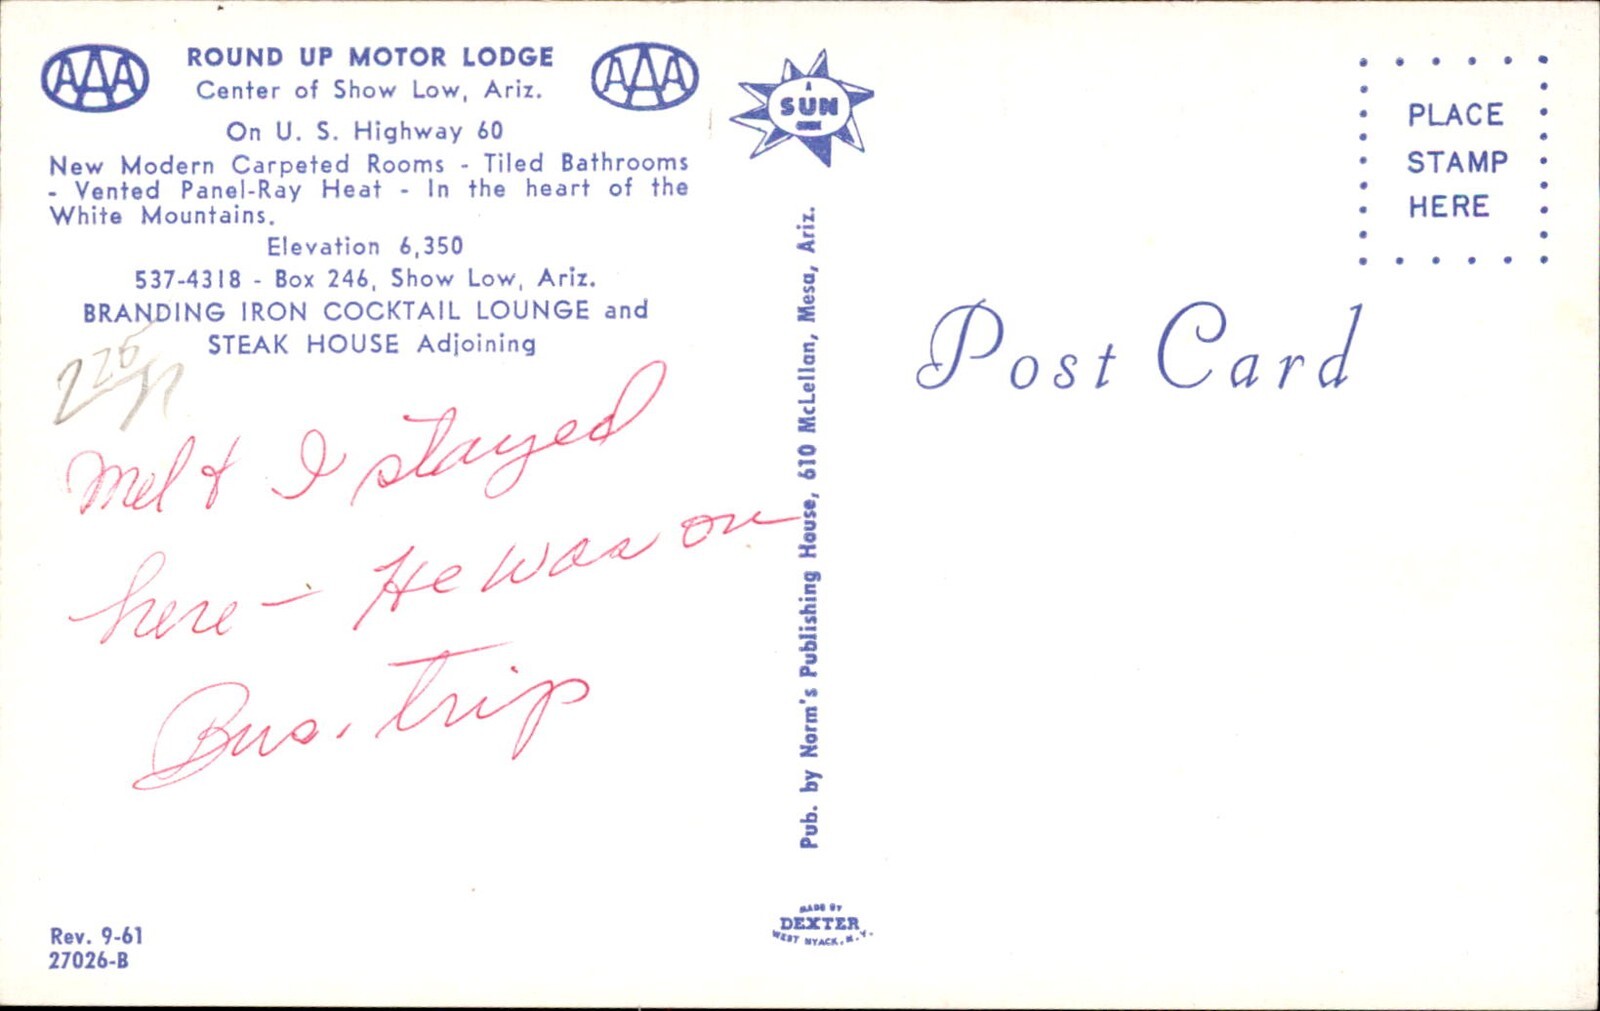 AAA
ROUND UP MOTOR LODGE
AAA
Center of Show Low, Ariz.
On U. S. Highway 60
New Modern Carpeted Rooms - Tiled Bathrooms
- Vented Panel-Ray Heat - In the heart of the
White Mountains.
Elevation 6,350
537-4318 - Box 246, Show Low, Ariz.
BRANDING IRON COCKTAIL LOUNGE and
STEAK HOUSE Adjoining
Mel & I stayed
here - He was on
Bus. trip
Rev. 9-61
27026-B
A
SUN
Pub. by Norm's Publishing House, 610 McLellan, Mesa, Ariz.
MADE BY
DEXTER
WEST NYACK, N.Y.
PLACE
STAMP
HERE
Post Card